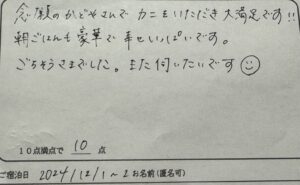 念願のかどやさんで カニをいただき 大満足です!!
朝ごはんも豪華で 幸せいっぱいです。
ごちそうさまでした。また伺いたいです
10点満点で 10 点
ご宿泊日 2024/12/1～2 お名前(匿名可)